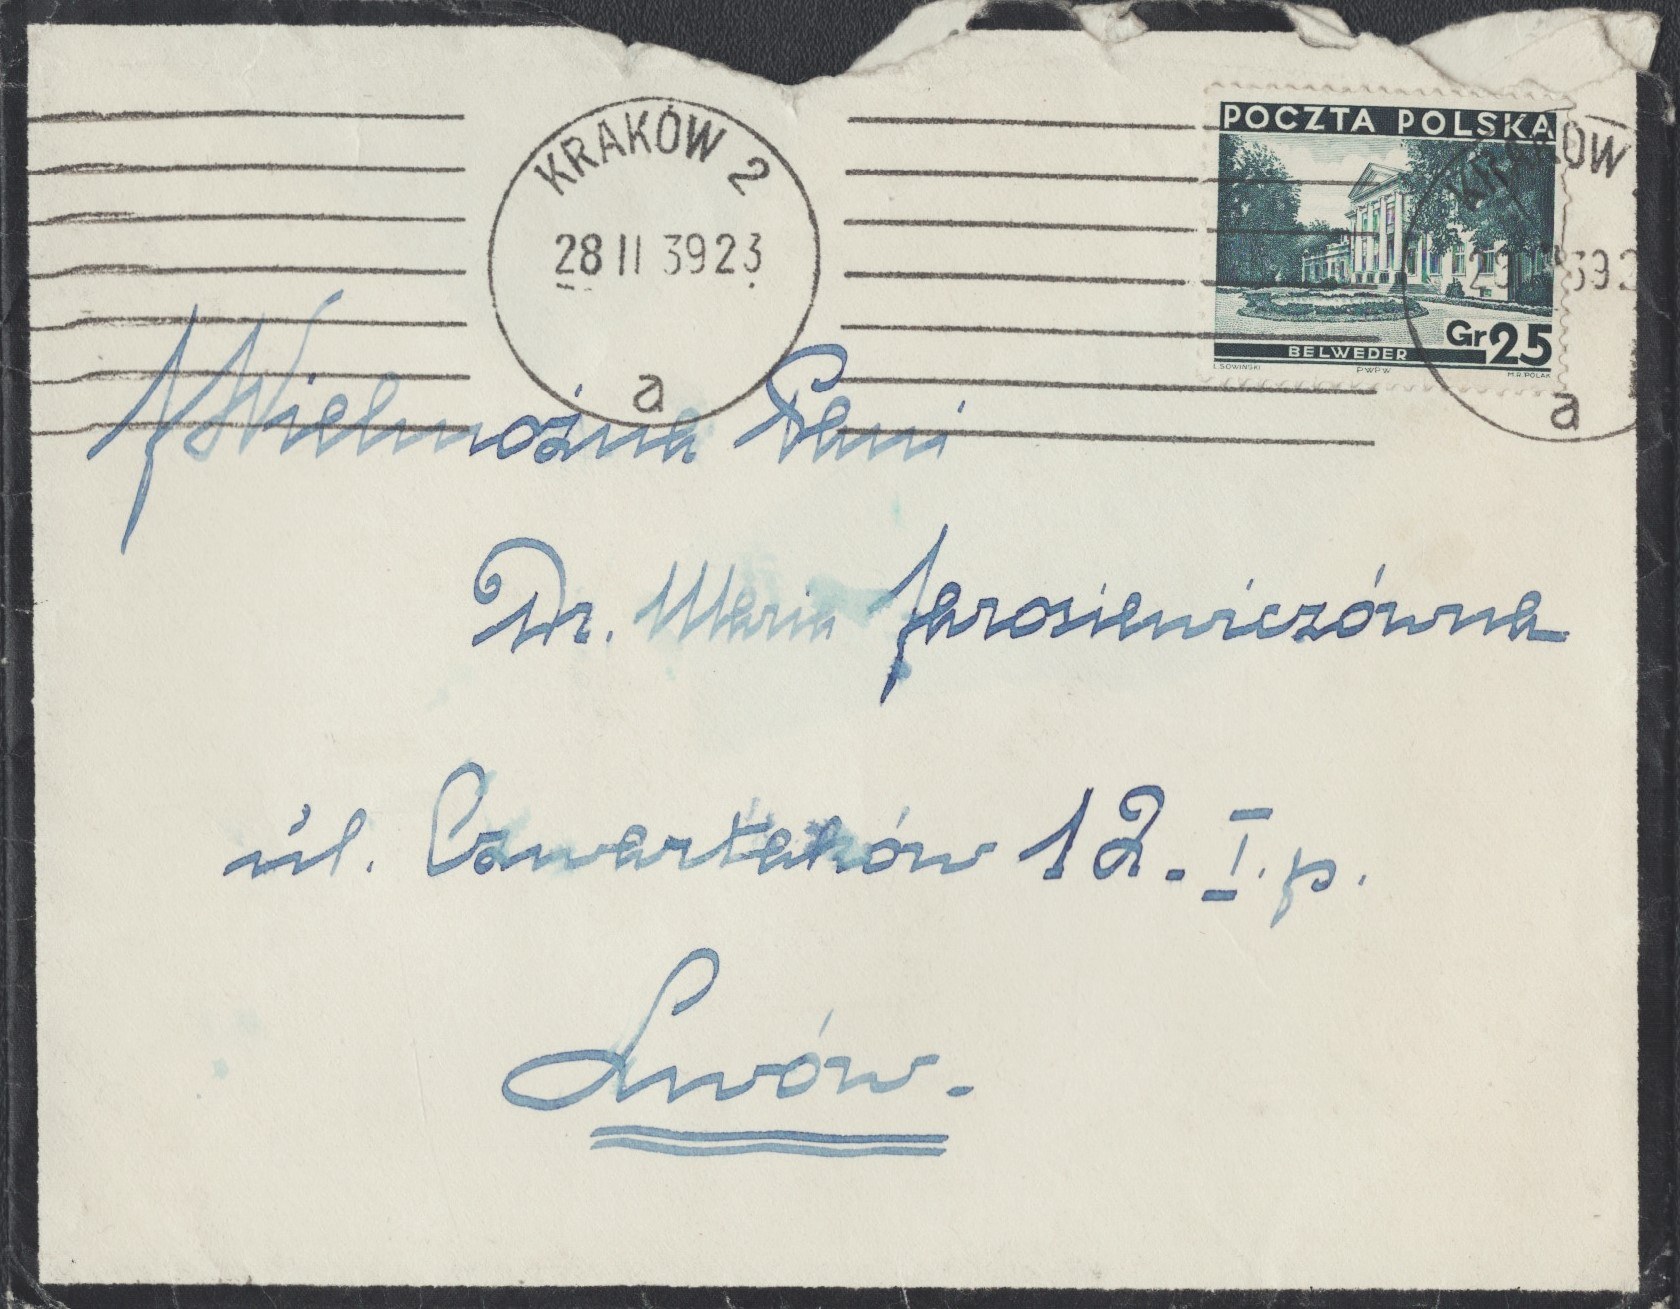 KRAKÓW 2
28 II 39 23
a
POCZTA POLSKA
Gr 25
BELWEDER
PWPW
M.R.POLAK
KRAKÓW
a
Wielmożna Pani
Dr. Maria Jarosiewiczówna
ul. Czwartaków 12. I. p.
Lwów.